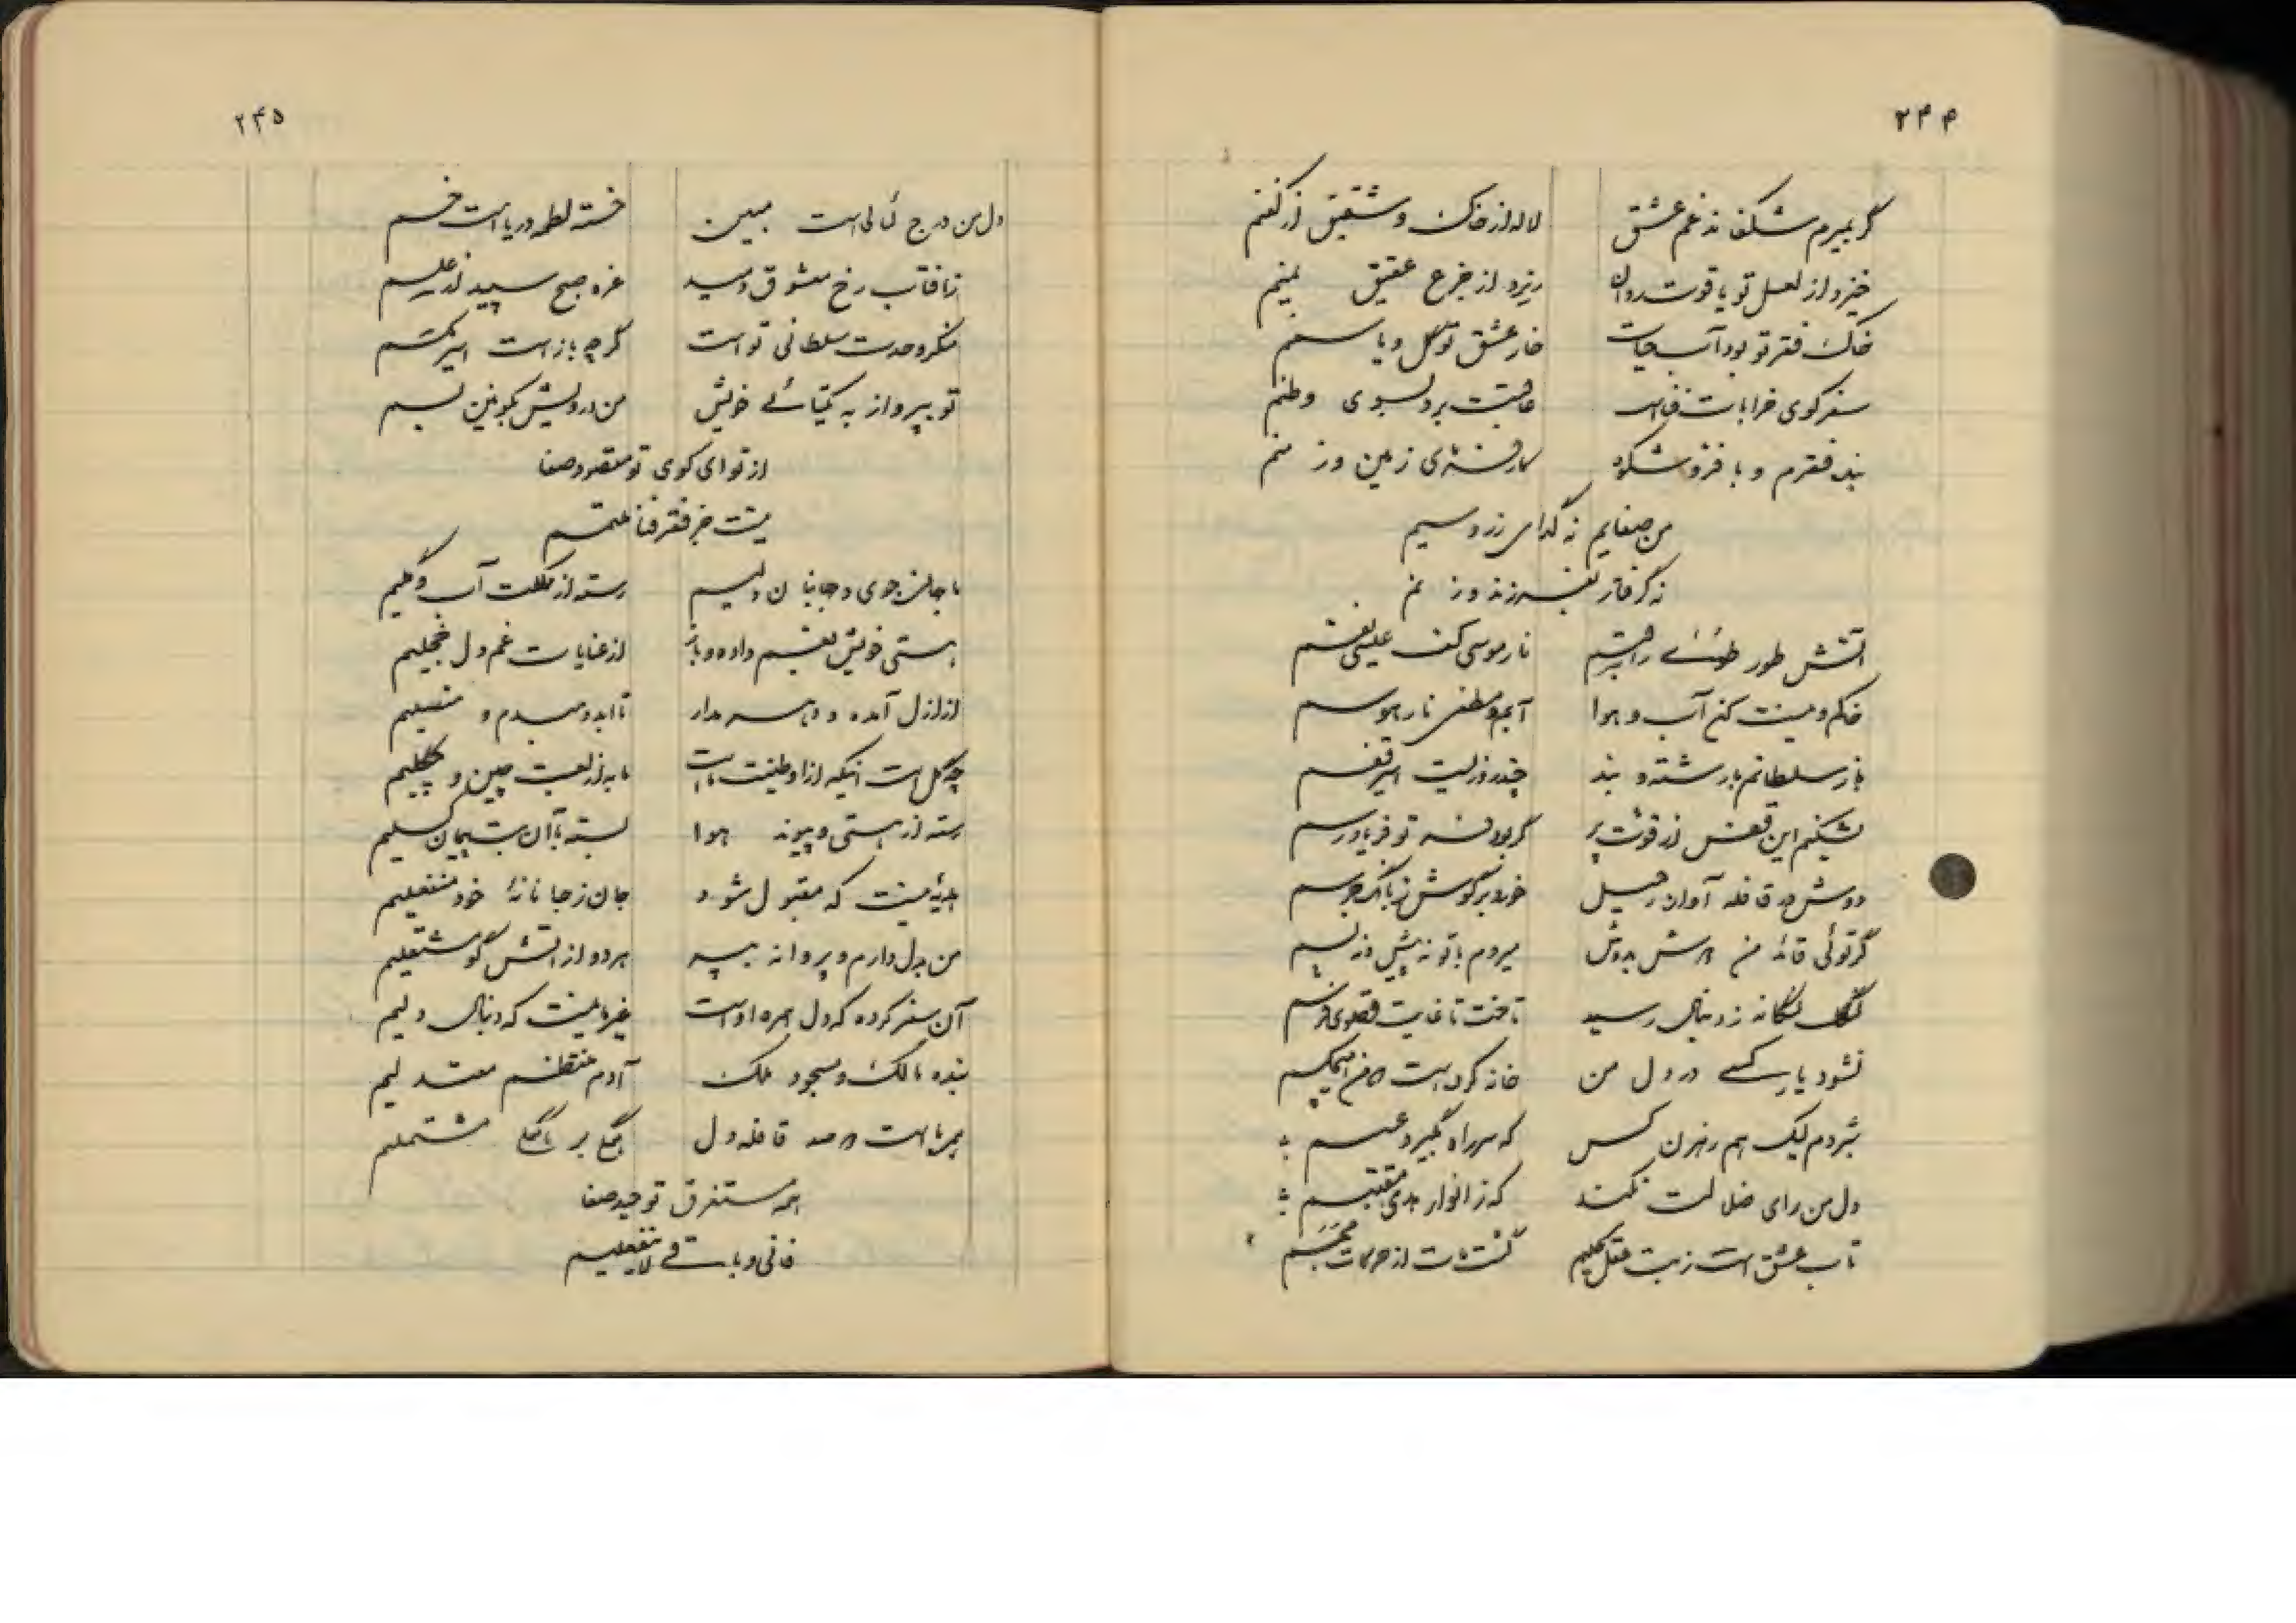 ۲۴۴
گر بمیرم شکفاند غم عشق لاله از خاک و شقیق از کفنم
خیزد از لعل تو یاقوت روان ریزد از جزع عقیق یمنم
خاک فقر تو بود آب حیات خار عشق تو گل و یاسمنم
سفر کوی خرابات فنا عاقبت برد بسوی وطنم
بنده فقرم و با فر و شکوه زمین و زمنم
من صفایم نه گدای زر و سیم
نه گرفتار بفرزند و زنم
آتش طور را قبسم نار موسی کف عیسی نفسم
خاکم و نیست کنم آب و هوا آبم و مطفی نار هوسم
باز سلطانم با رشته و بند چند روزیست اسیر قفسم
بشکنم این قفس از قوت پر گر بود تو فریادرسم
دوش در قافله آواز رحیل خورد بر گوش ز بانگ جرسم
گر توئی قائد من دوش بدوش میروم با تو نه پیش و نه پسم
لنگ لنگانه ز دنبال رسید تاخت تا غایت قصوی فرسم
نشود یار کسی در دل من خانه کرده است
شبروم لیک هم رهزن کس که سر راه بگیرد عسسم
دل من رای ضلالت نکند که ز انوار هدی مقتبسم
تاب عشق است
۲۴۵
دل من درج لئالی است مبین خسته لطمه دریا است خسم
زافتاب رخ معشوق دمید غره صبح سپید از غلسم
منکر وحدت سلطانی تو است گر چه باز است اسیر مگسم
تو بپرواز به یکتائی خویش من درویش بکونین بسم
از تو ای کوی تو مقصود صفا
نیست جز فقر و فنا ملتمسم
ما جهان جوی و جهانبان دلیم رسته از مملکت آب و گلیم
هستی خویش بغم داده و باز از عنایات غم دل خجلیم
از ازل آمده و در همه دار تا ابد و منصلیم
چه گل است اینکه از او طینت ما است ما به از لعبت چین و چگلیم
رسته از هستی و پیوند هوا بسته با آن بت پیمان گسلیم
هدیه نیست که مقبول شود جان ز جانانه خود منفعلیم
من بدل دارم و پروانه بپر هر دو از آتش او مشتعلیم
آن سفر کرده که دل همره او است غیر ما نیست که دنبال دلیم
بنده مالک و مسجود ملک آدم منتظم معتدلیم
سر ما است در صد قافله دل همگی بر همگی مشتملیم
همه مستغرق توحید صفا
فانی و باقی